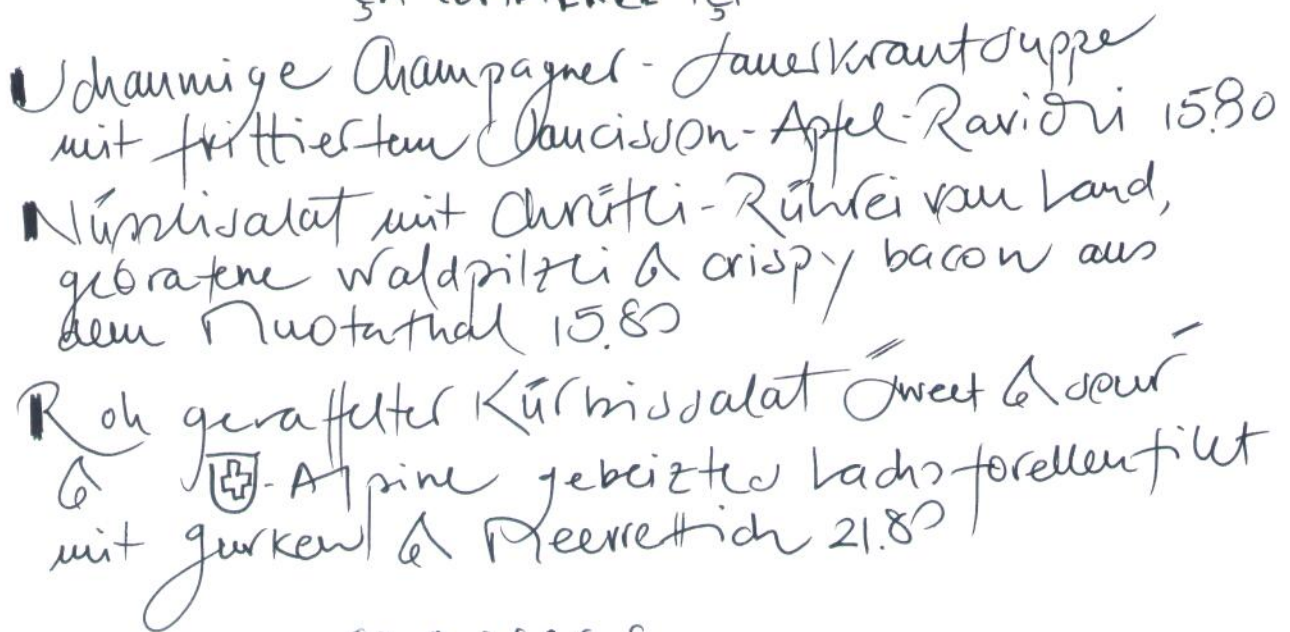 ça commence ici
Schaumige Champagner-Sauerkrautsuppe
mit frittiertem Saucisson-Apfel-Ravioli 15.80
Nüsslisalat mit Chrütli-Rührei vom Land,
gebratene Waldpilzli & crispy bacon aus
dem Muotathal 15.80
Roh geraffelter Kürbissalat "sweet & sour"
& -Alpine gebeiztes Lachsforellenfilet
mit Gurken & Meerrettich 21.80